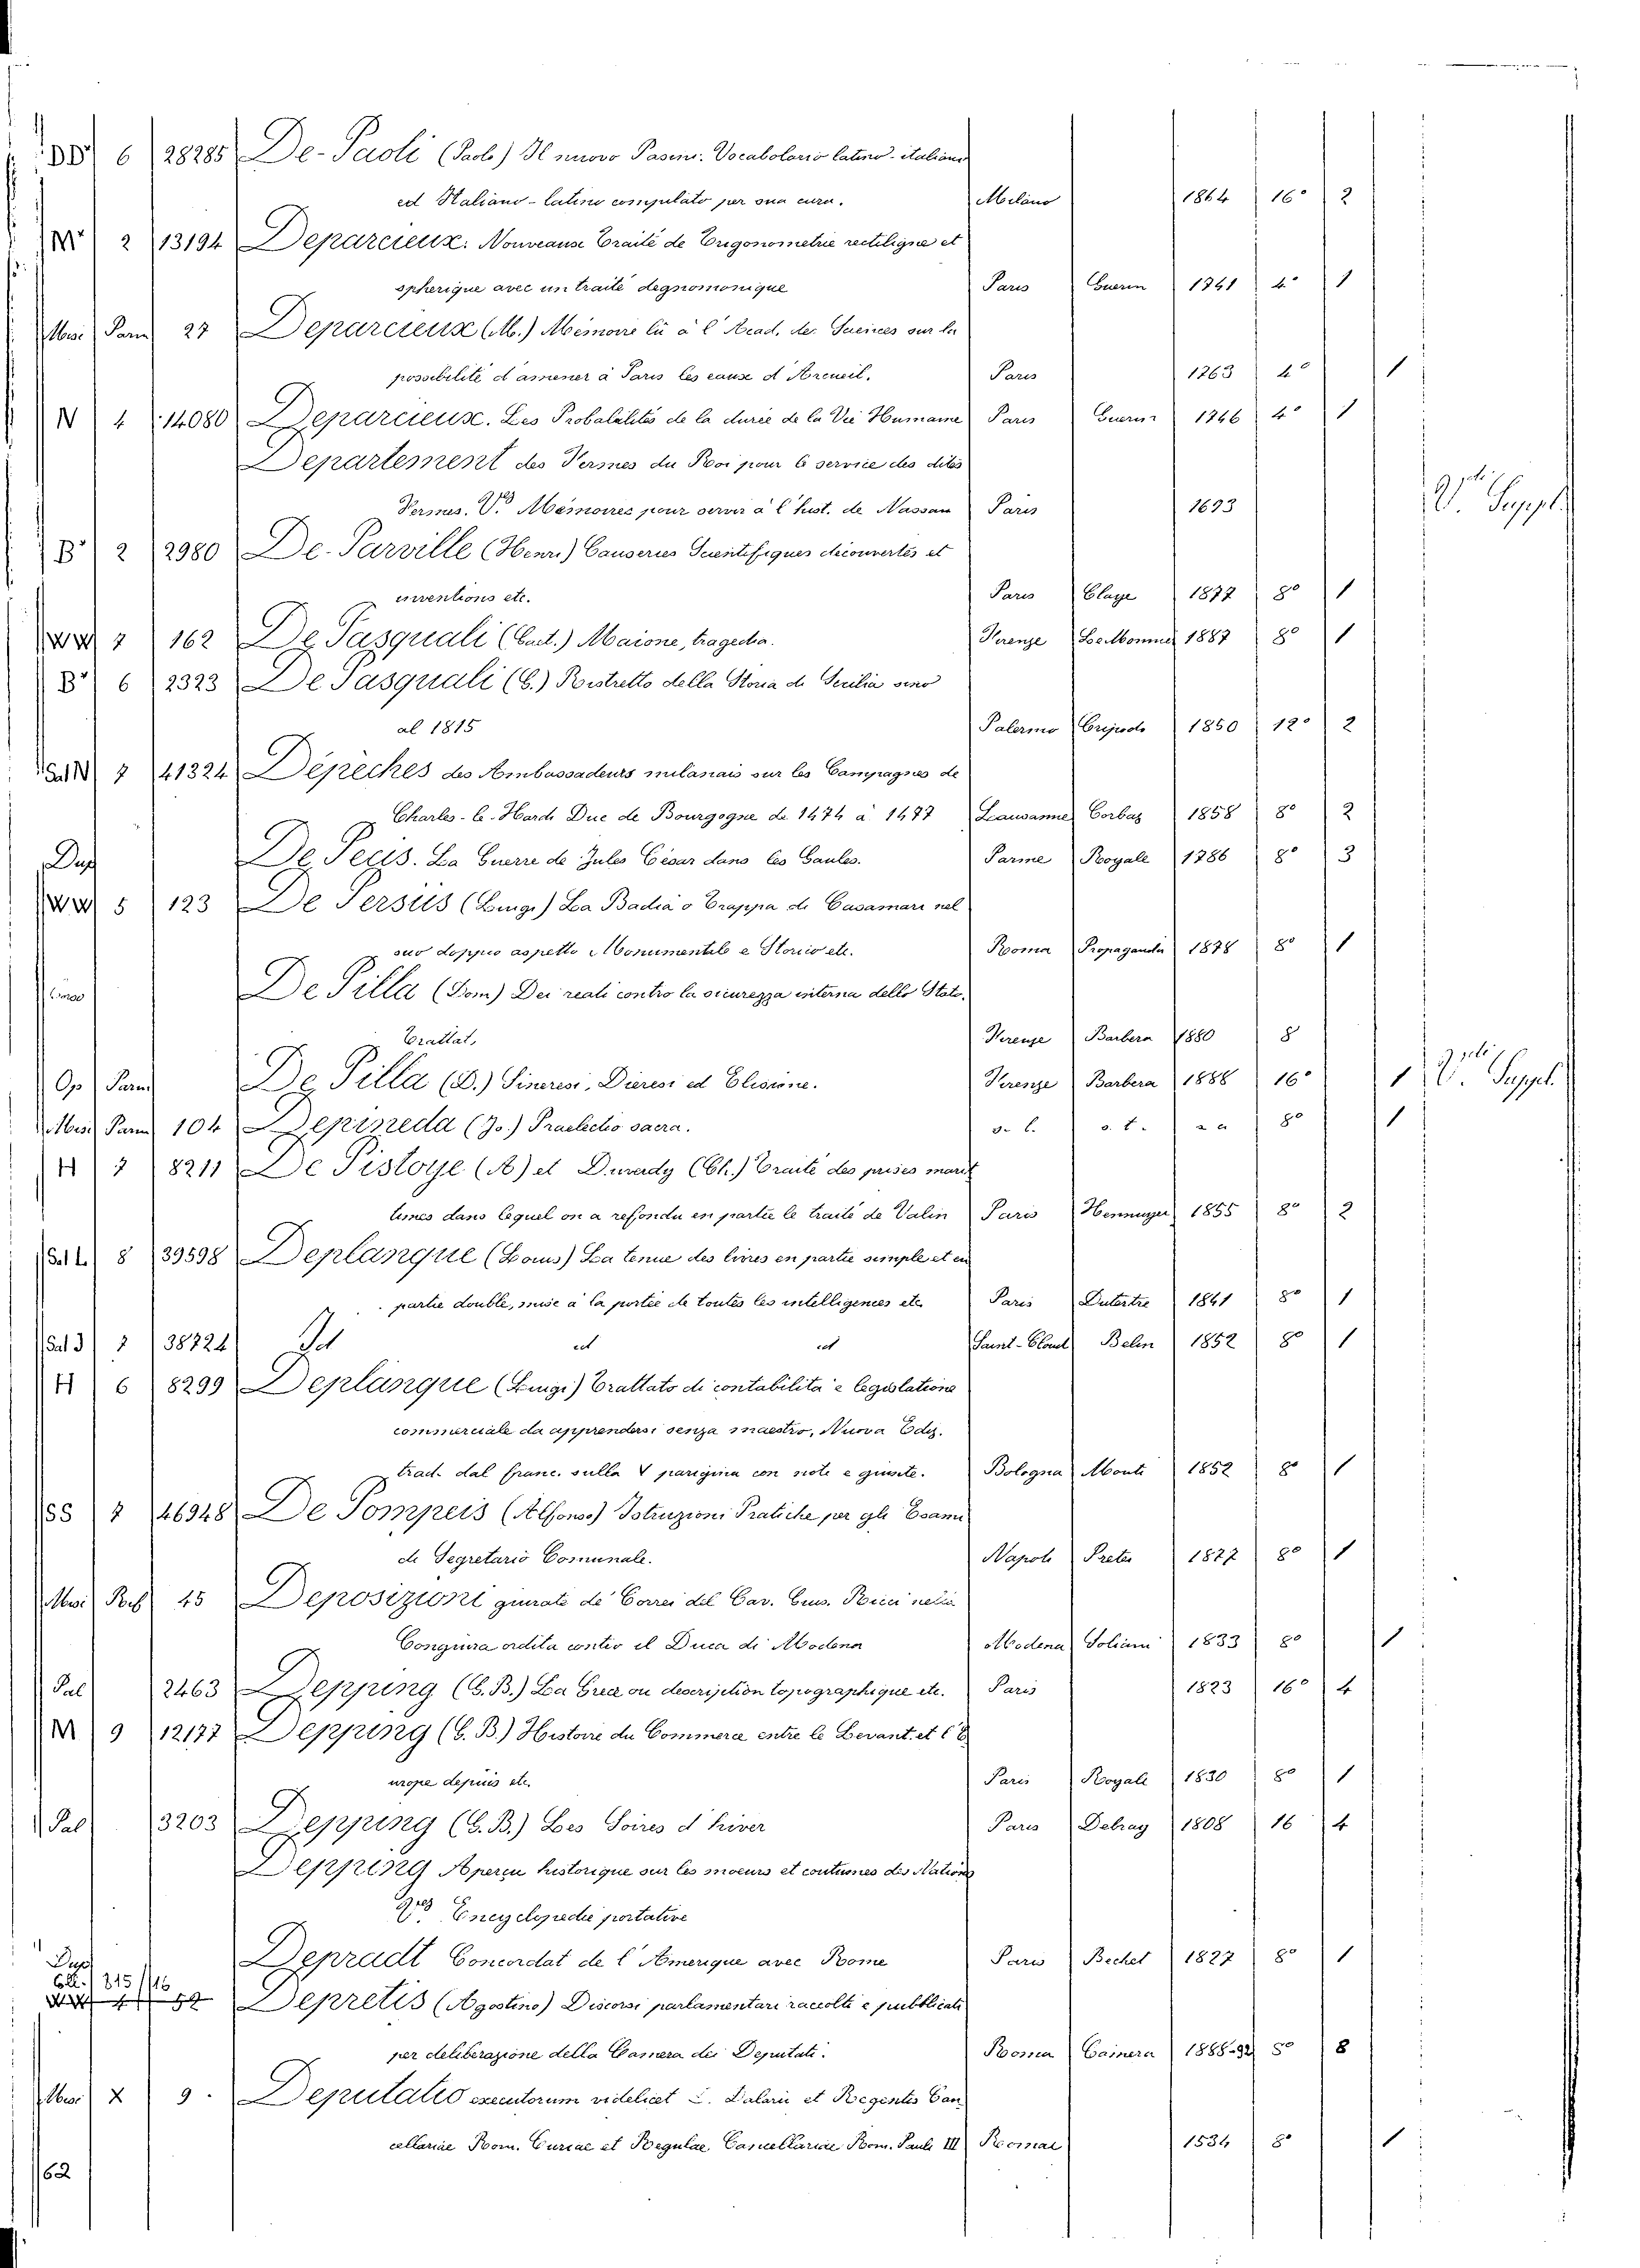 DD' 6 28285 De-Paoli (Paolo) Il nuovo Pasini. Vocabolario latino-italiano
ed Italiano-latino compilato per sua cura. Milano 1864 16° 2
M' 2 13194 Deparcieux. Nouveaux Traité de Trigonometrie rectiligne et
spherique avec un traité degnomonique Paris Guerin 1741 4° 1
Misc Parm 27 Deparcieux (M.) Mémoire lu à l'Acad. des Sciences sur la
possibilité d'amener à Paris les eaux d'Arcueil. Paris 1763 4° 1
N 4 14080 Deparcieux. Les Probabilités de la durée de la Vie Humaine Paris Guerin 1746 4° 1
Departement des Fermes du Roi pour le service des dites
Fermes. V.º Mémoires pour servir à l'hist. de Nassau Paris 1693 V. Suppl.
B' 2 2980 De-Parville (Henri) Causeries Scientifiques découvertes et
inventions etc. Paris Claye 1872 8° 1
WW 7 162 De Pasquali (Cact.) Maione, tragedia. Firenze Le Monnier 1887 8° 1
B' 6 2323 De Pasquali (C.) Ristretto della Storia di Sicilia sino
al 1815 Palermo 1850 12° 2
Sal N 7 41324 Dépeches des Ambassadeurs milanais sur les Campagnes de
Charles-le-Hardi Duc de Bourgogne de 1474 à 1477 Lausanne Corbaz 1858 8° 2
Dup De Pecis. La Guerre de Jules César dans les Gaules. Parme Royale 1786 8° 3
WW 5 123 De Persiis (Luigi) La Badia o Trappa di Casamari nel
suo doppio aspetto Monumentale e Storico etc. Roma Propaganda 1878 8° 1
De Pilla (Dom) Dei reati contro la sicurezza interna dello Stato.
Trattat. Firenze Barbera 1880 8
Op Parm De Pilla (D.) Sineresi, Dieresi ed Elisione. Firenze Barbera 1888 16° 1 V. Suppl.
Misc Parm 104 Depineda (Jo.) Praelectio sacra. s. l. s. t. s. a 8° 1
H 7 8211 De Pistoye (A) et Duverdy (Ch.) Traité des prises marit
times dans lequel on a refondu en partie le traité de Valin Paris Hennuyer 1855 8° 2
Sal L 8 39598 Deplanque (Louis) La tenue des livres en partie simple et en
partie double, mise à la portée de toutes les intelligences etc Paris Dutertre 1841 8° 1
Sal 3 7 38724 Id id id Saint-Cloud Belin 1852 8° 1
H 6 8299 Deplanque (Luigi) Trattato di contabilità e legislatione
commerciale da apprendersi senza maestro, Nuova Ediz.
trad. dal franc. sulla V parigina con note e giunte. Bologna Monti 1852 8° 1
SS 7 46948 De Pompeis (Alfonso) Istruzioni Pratiche per gli Esami
di Segretario Comunale. Napoli Preter 1877 8° 1
45 Deposizioni giurate de' Correi del Cav. Gius. Ricci nella
Congiura ordita contro il Duca di Modena Modena Soliani 1833 8° 1
Pal 2463 Depping (G. B.) La Grece ou description topographique etc. Paris 1823 16° 4
M 9 12177 Depping (G. B.) Histoire du Commerce entre le Levant et l'E
urope depuis etc. Paris Royale 1830 8° 1
Pal 3203 Depping (G. B.) Les Soires d'hiver Paris Delray 1808 16 4
Depping Aperçu historique sur les moeurs et coutumes des Nations
V.º Encyclopedie portative
Dup Depradt Concordat de l'Amerique avec Rome Paris Bechet 1827 8° 1
Coll. 315/16
59 Depretis (Agostino) Discorsi parlamentari raccolti e pubblicati
per deliberazione della Camera dei Deputati. Roma Camera 1888-92 8° 8
Misc X 9. Deputatio executorum videlicet Datarii et Regentis Can
cellariae Rom. Curiae et Regulae Cancellariae Rom. Pauli III Romae 1534 8° 1
162